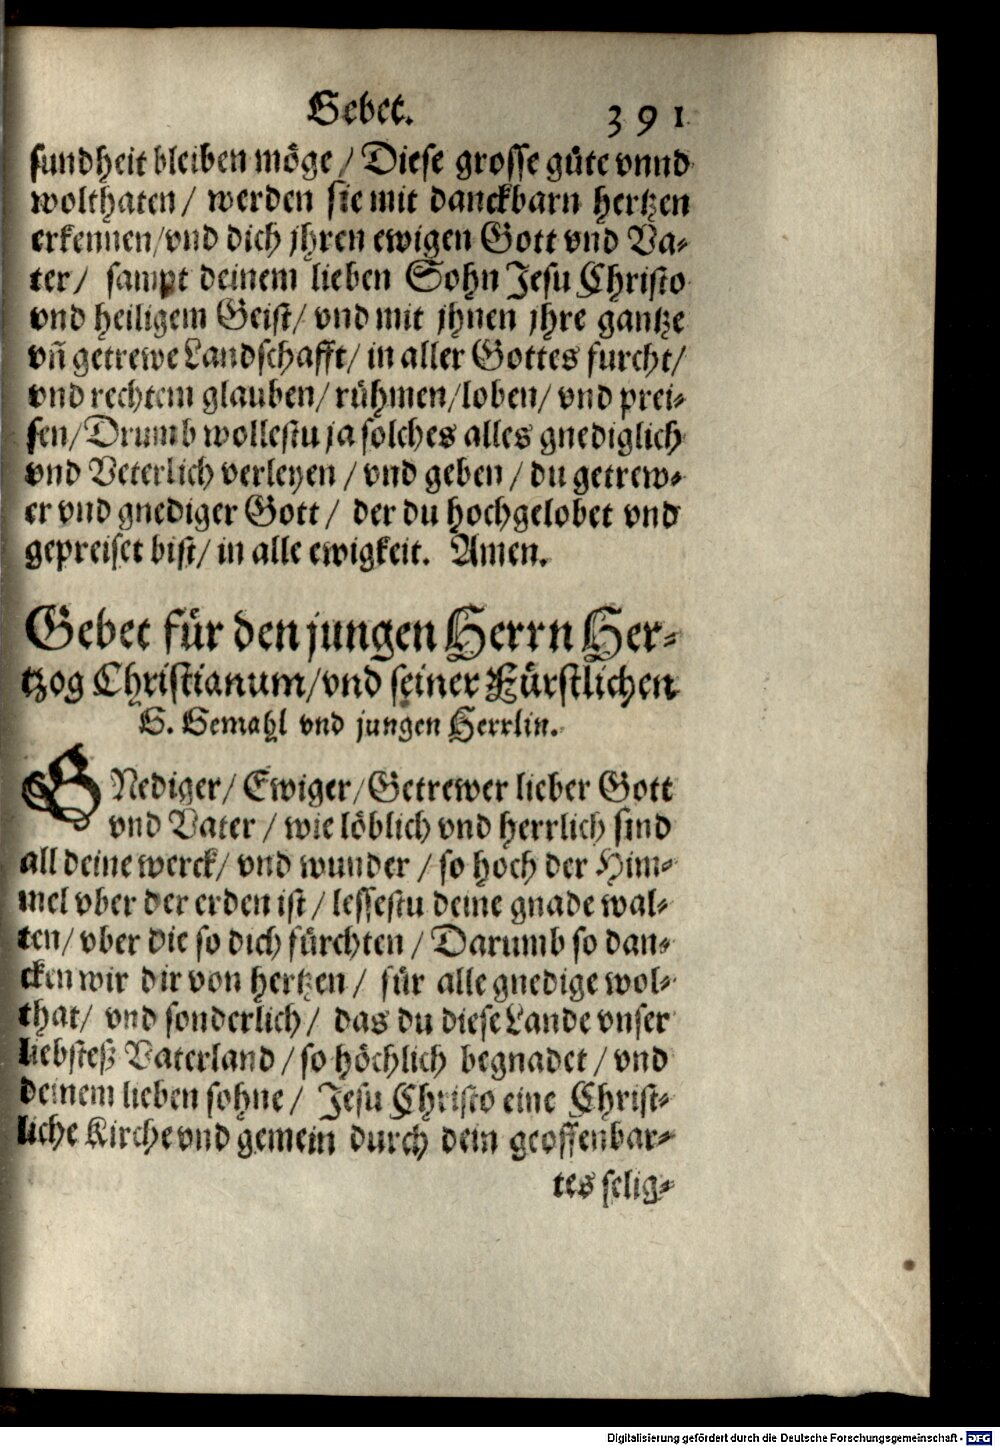 Gebet. 391
sundheit bleiben möge / Diese grosse güte vnnd
wolthaten / werden sie mit danckbarn hertzen
erkennen/vnd dich jhren ewigen Gott vnd Va-
ter / sampt deinem lieben Sohn Jesu Christo
vnd heiligem Geist/ vnd mit jhnen jhre gantze
vñ getrewe Landschafft/ in aller Gottes furcht/
vnd rechtem glauben/ rühmen/loben/ vnd prei-
sen/Drumb wollestu ja solches alles gnediglich
vnd Veterlich verleyen / vnd geben / du getrew-
er vnd gnediger Gott / der du hochgelobet vnd
gepreiset bist/ in alle ewigkeit. Amen.
Gebet für den jungen Herrn Her-
tzog Christianum/vnd seiner Fürstlichen
G. Gemahl vnd jungen Herrlin.
GNediger/ Ewiger/Getrewer lieber Gott
vnd Vater / wie löblich vnd herrlich sind
all deine werck/ vnd wunder / so hoch der Him-
mel vber der erden ist / lessestu deine gnade wal-
ten/ vber die so dich fürchten / Darumb so dan-
cken wir dir von hertzen / für alle gnedige wol-
that/ vnd sonderlich / das du diese Lande vnser
liebsteß Vaterland / so höchlich begnadet / vnd
deinem lieben sohne / Jesu Christo eine Christ-
liche Kirche vnd gemein durch dein geoffenbar-
tes selig-
Digitalisierung gefördert durch die Deutsche Forschungsgemeinschaft - DFG